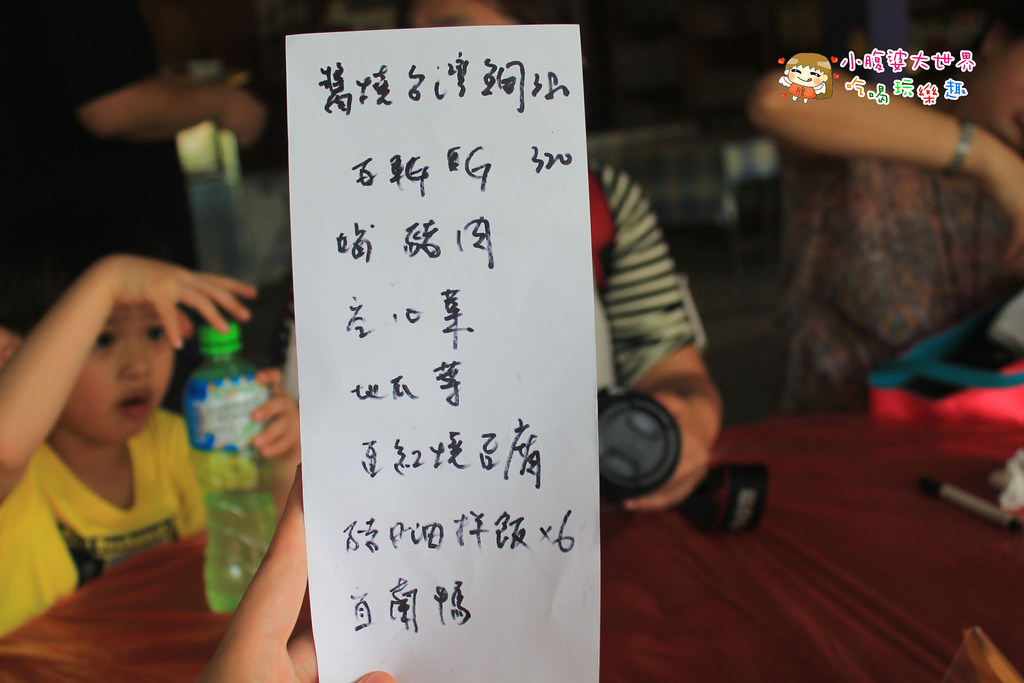 小腹婆大世界
吃喝玩樂趣
醬燒台灣鯛
320
豬肉
空心菜
地瓜葉
紅燒豆腐
豬油拌飯x6
宜蘭鴨